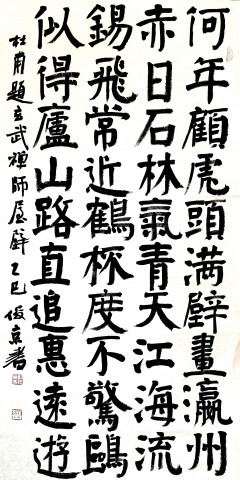 何年顧虎頭满壁畫瀛州
赤日石林氣青天江海流
錫飛常近鶴杯度不驚鷗
似得廬山路直追惠遠遊
杜甫題玄武禪師屋壁 乙巳 俊書